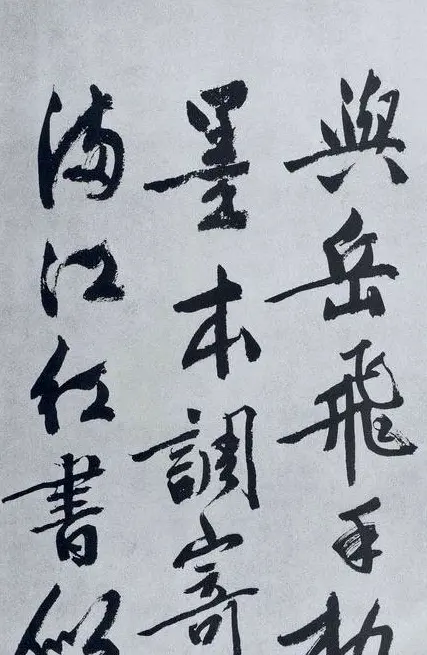 與岳飛手勅
墨本調寄
滿江紅書似